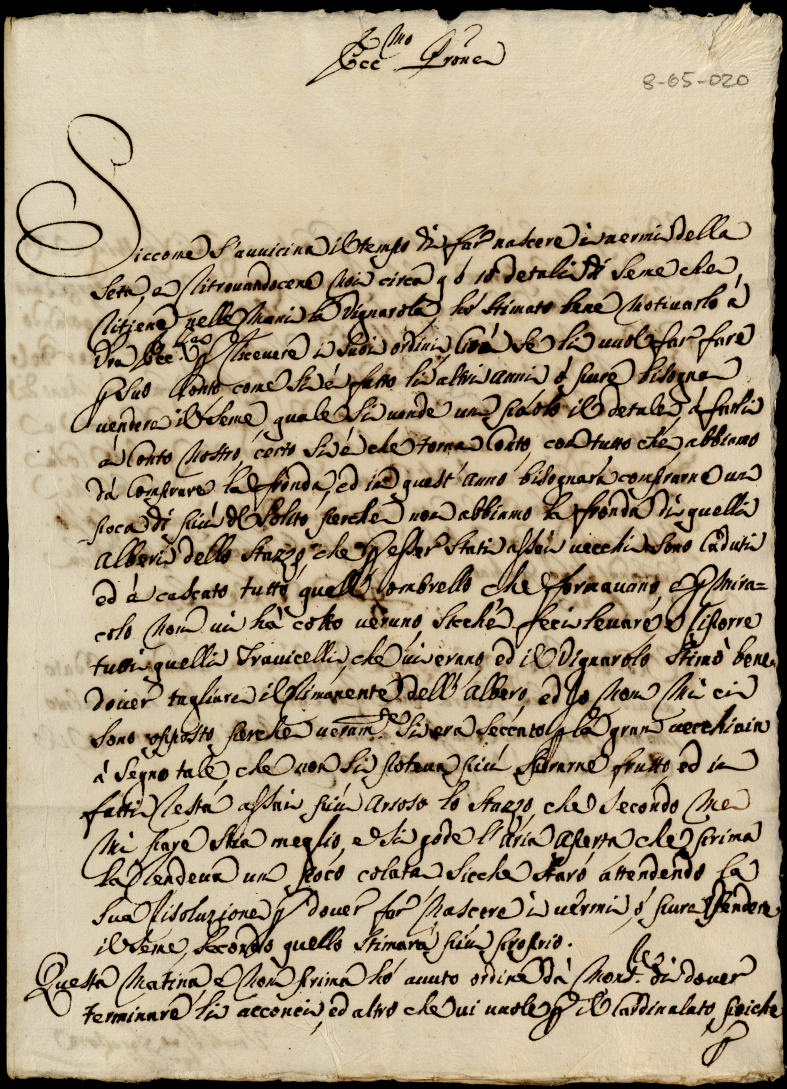 Ecc.mo Prone
8-05-020
Siccome s'avvicina il tempo di far nascere i vermi della
Seta, e ritrovandocene noi circa 9 ó 10 detali di seme che
ritiene nelle mani la Vignarola, hó stimato bene motivarlo á
Vra Ecc.za p ricevere i suoi ordini, cioé se li vuole far fare
p suo Conto come si é fatto li altri anni, ó pure bisogna
vendere il seme, quale si vende un pavolo il detale, á farli
á Conto Nostro, certo si é che torna Conto, con tutto che abbiamo
dá Comprare la fronda, ed in quest' anno bisognará comprarne un
poca di piú del solito perche non abbiamo la fronda di quelli
Alberi dello Stazzo, che p esser stati assai vecchi sono Caduti
ed á cascato tutto quell' ombrello che formavano, e p mira=
colo non vi há colto veruno sicché feci levare, e riporre
tutti quelli Travicelli, che vi erano, ed il Vignarolo stimó bene
dover tagliare il rimanente dell' Albero, ed Io non mi ci
sono opposto perche veram.te si era seccato p la gran vecchiaia
á segno tale che non si poteva piú sperarne frutto, ed in
fatti resta assai piú arioso lo Stazzo, che secondo me
mi pare stia meglio, e si gode l'aria aperta che prima
la rendeva un poco colata sicche staró attendendo la
sua risoluzione p dover far nascere i vermi, ó pure vendere
il seme, secondo quello stimará piú proprio.
Questa Matina e non prima hó avuto ordine dá Mons.re di dover
terminare li acconci, ed altro che vi vuole p il Cardinalato, poiche
p